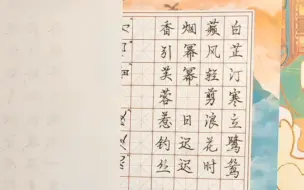 白芷汀寒立鹭鸶
蘋风轻剪浪花时
烟幂幂日迟迟
香引芙蓉惹钓丝